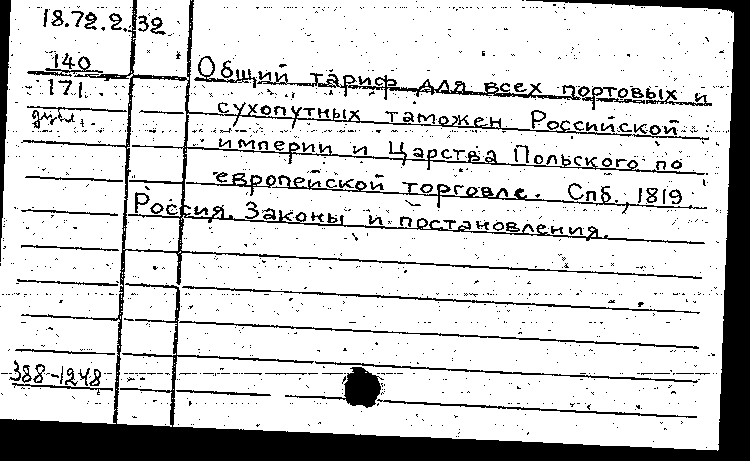 18.72.2.32
140
171.
дубл.
Общий тариф для всех портовых и
сухопутных таможен Российской
империи и Царства Польского по
европейской торговле. Спб., 1819.
Россия. Законы и постановления.
388-1248